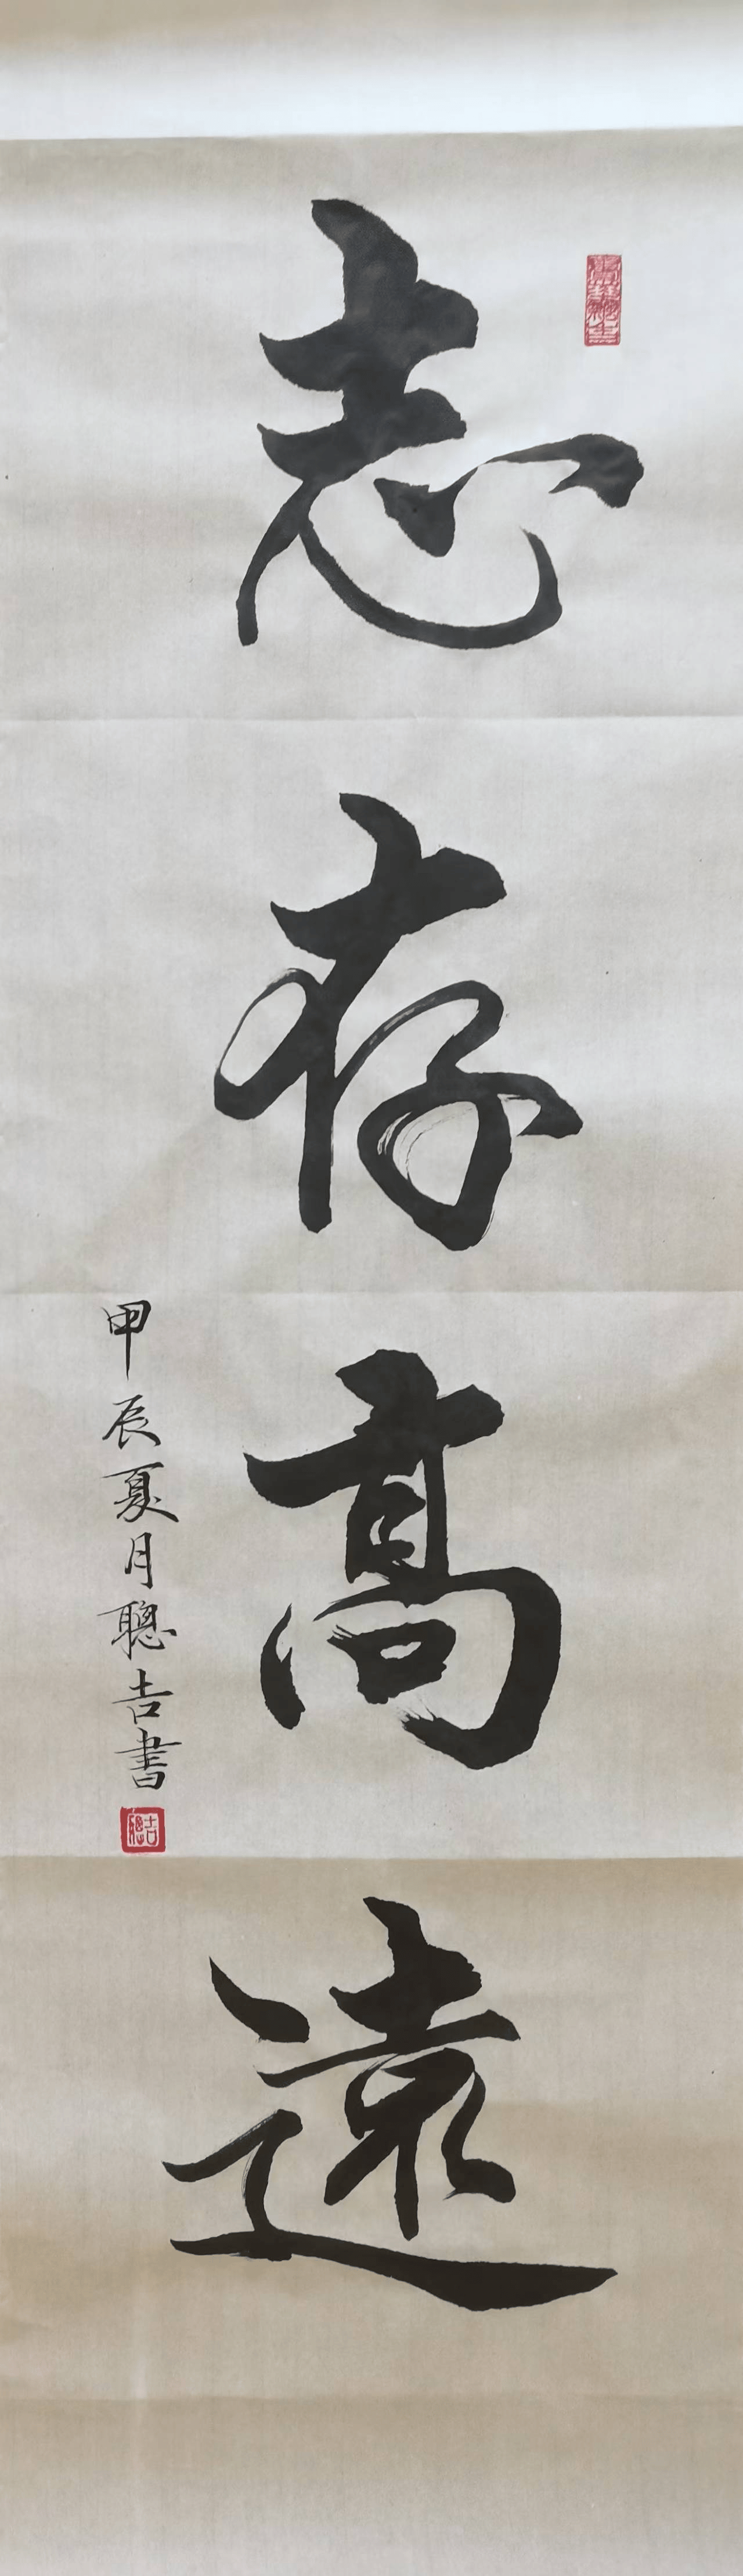 志存高遠
甲辰夏月聰吉書